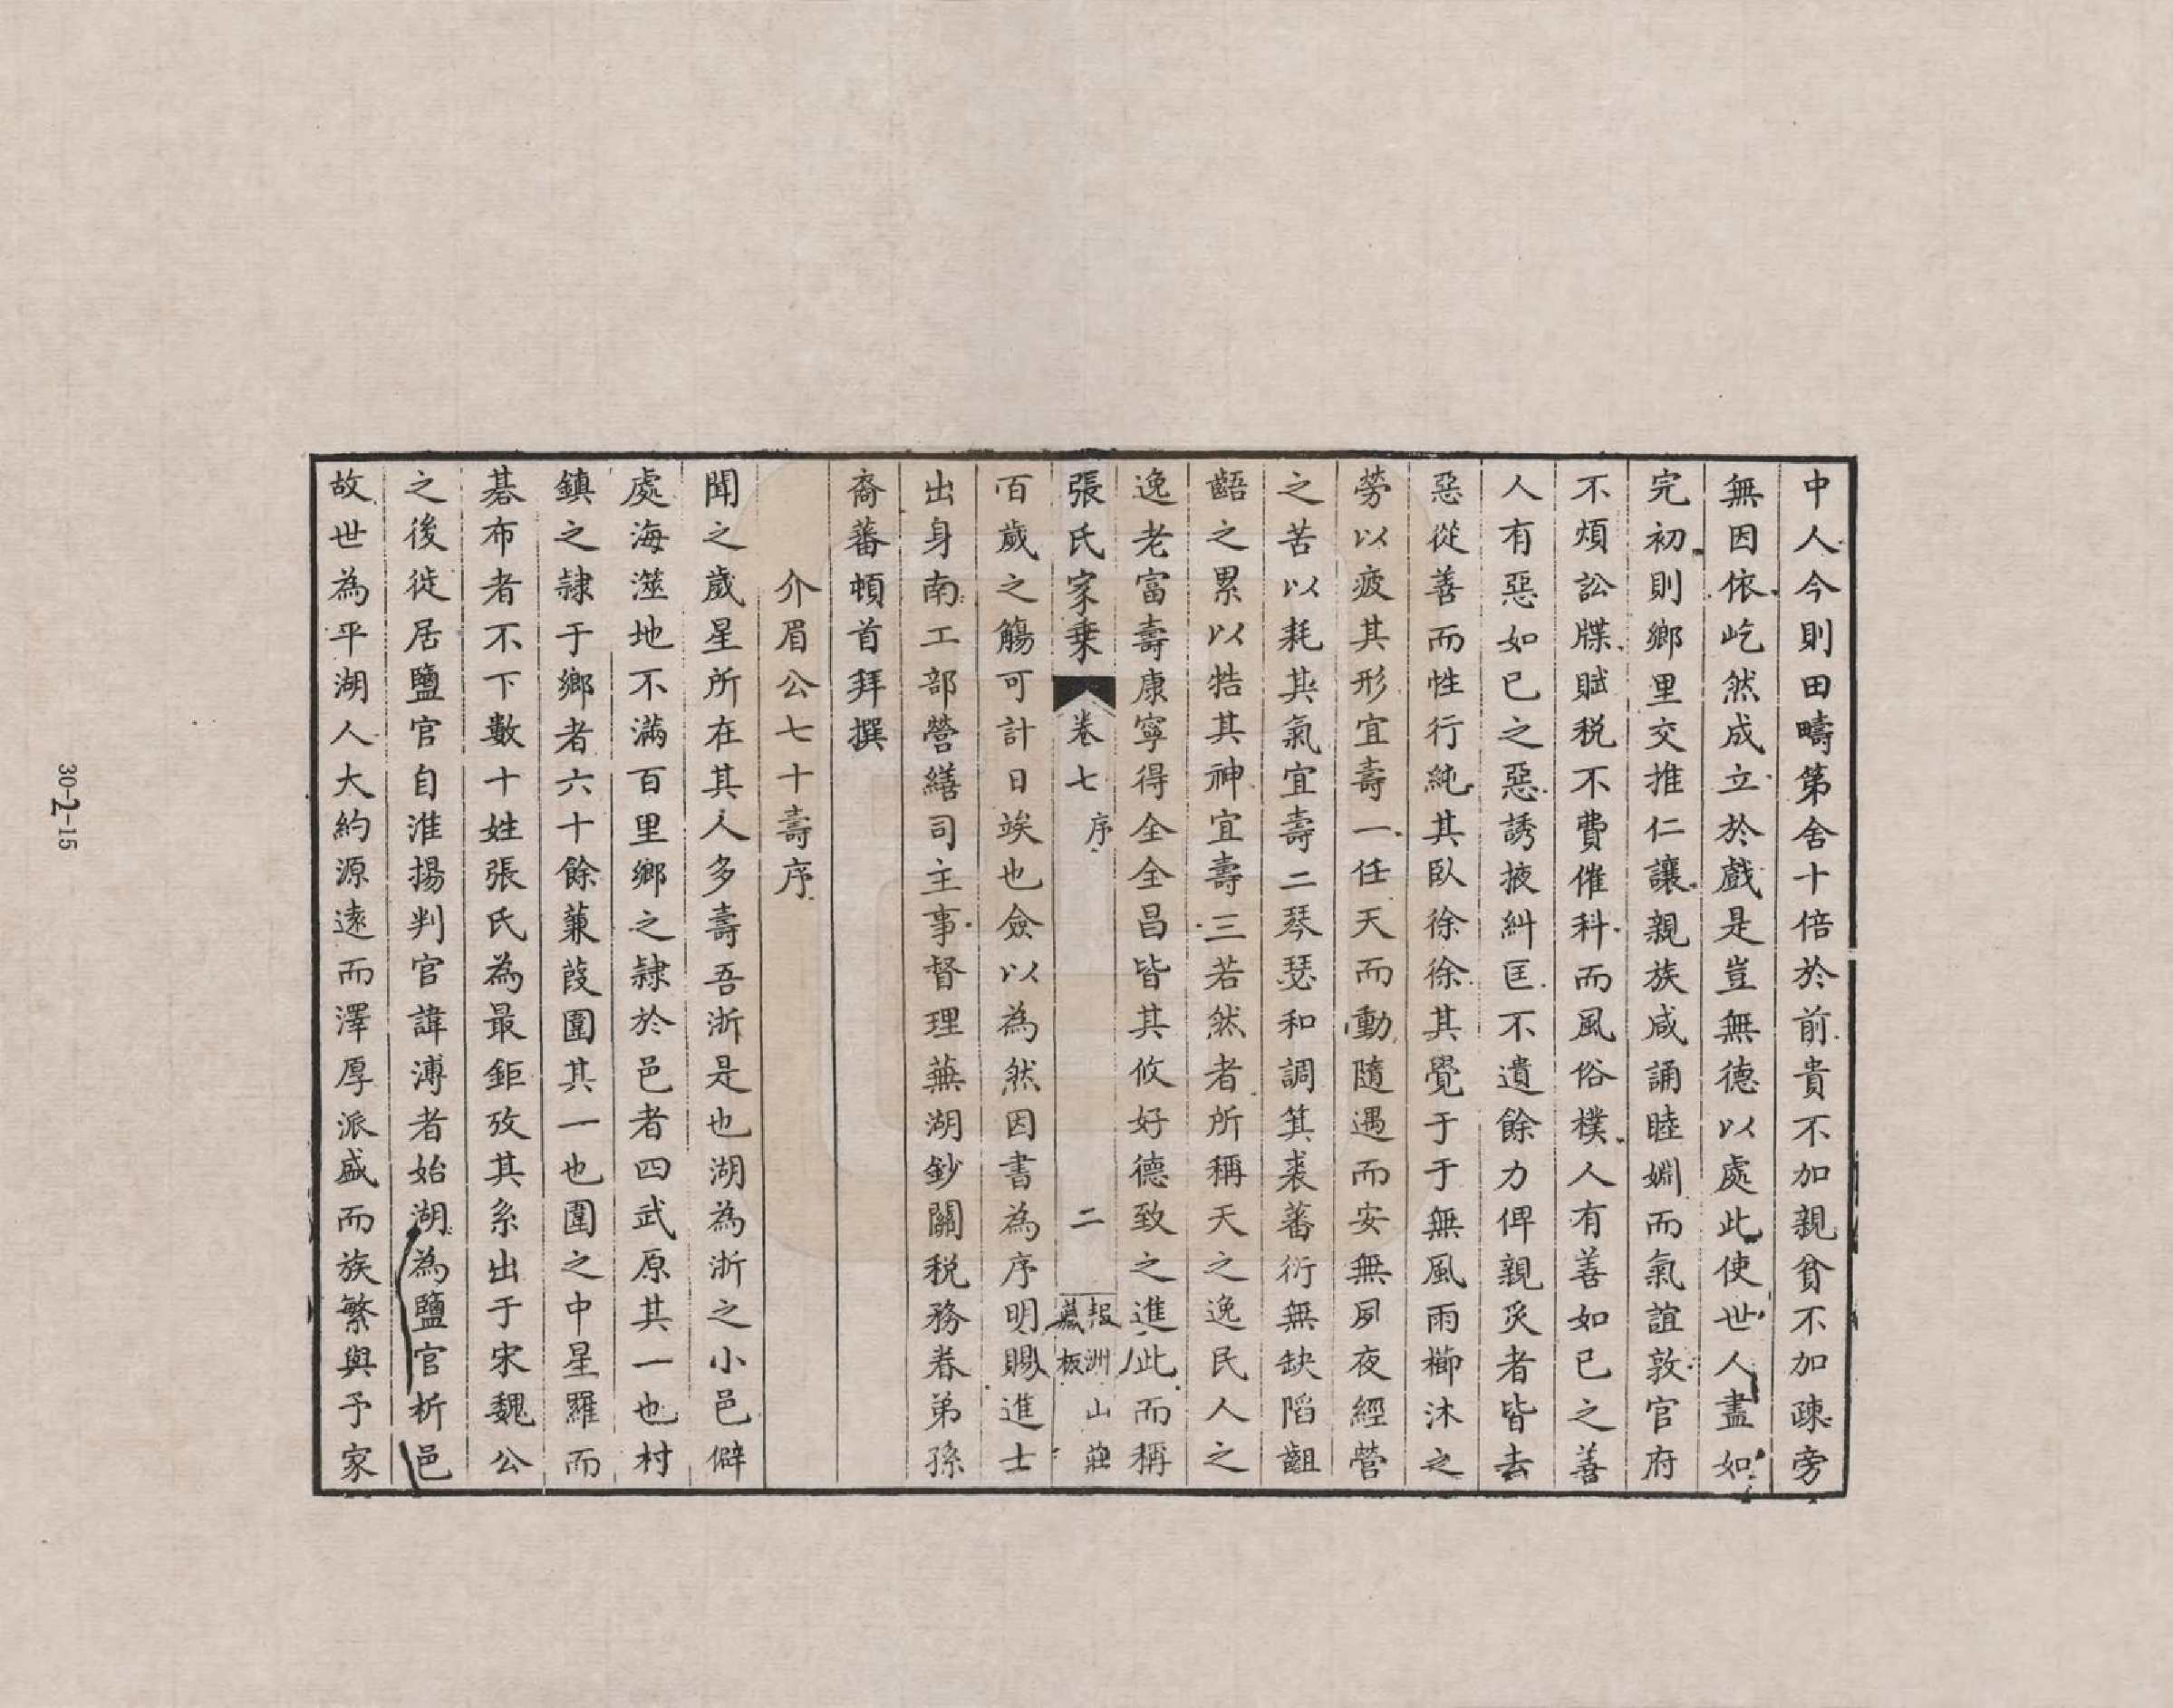 中人今則田疇第舍十倍於前貴不加親貧不加疎旁
無因依屹然成立於戲是豈無德以處此使世人盡如
完初則鄉里交推仁讓親族咸誦睦婣而氣誼敦官府
不煩訟牒賦税不費催科而風俗樸人有善如已之善
人有惡如已之惡誘掖糾匡不遺餘力俾親炙者皆去
惡從善而性行純其臥徐徐其覺于于無風雨櫛沐之
勞以疲其形宜壽一任天而動隨遇而安無夙夜經營
之苦以耗其氣宜壽二琴瑟和調箕裘蕃衍無缺陷齟
齬之累以牿其神宜壽三若然者所稱天之逸民人之
逸老富壽康寧得全全昌皆其攸好德致之進此而稱
張氏家乗 卷七 序 二 報洲山莊藏板
百歲之觴可計日竢也僉以為然因書為序明賜進士
出身南工部營繕司主事督理蕪湖鈔關税務眷弟孫
裔蕃頓首拜撰
介眉公七十壽序
聞之歲星所在其人多壽吾浙是也湖為浙之小邑僻
處海澨地不滿百里鄉之隷於邑者四武原其一也村
鎮之隷于鄉者六十餘蒹葭圍其一也圍之中星羅而
碁布者不下數十姓張氏為最鉅攷其系出于宋魏公
之後徙居鹽官自淮揚判官諱溥者始湖為鹽官析邑
故世為平湖人大約源遠而澤厚派盛而族繁與予家
30-2-15